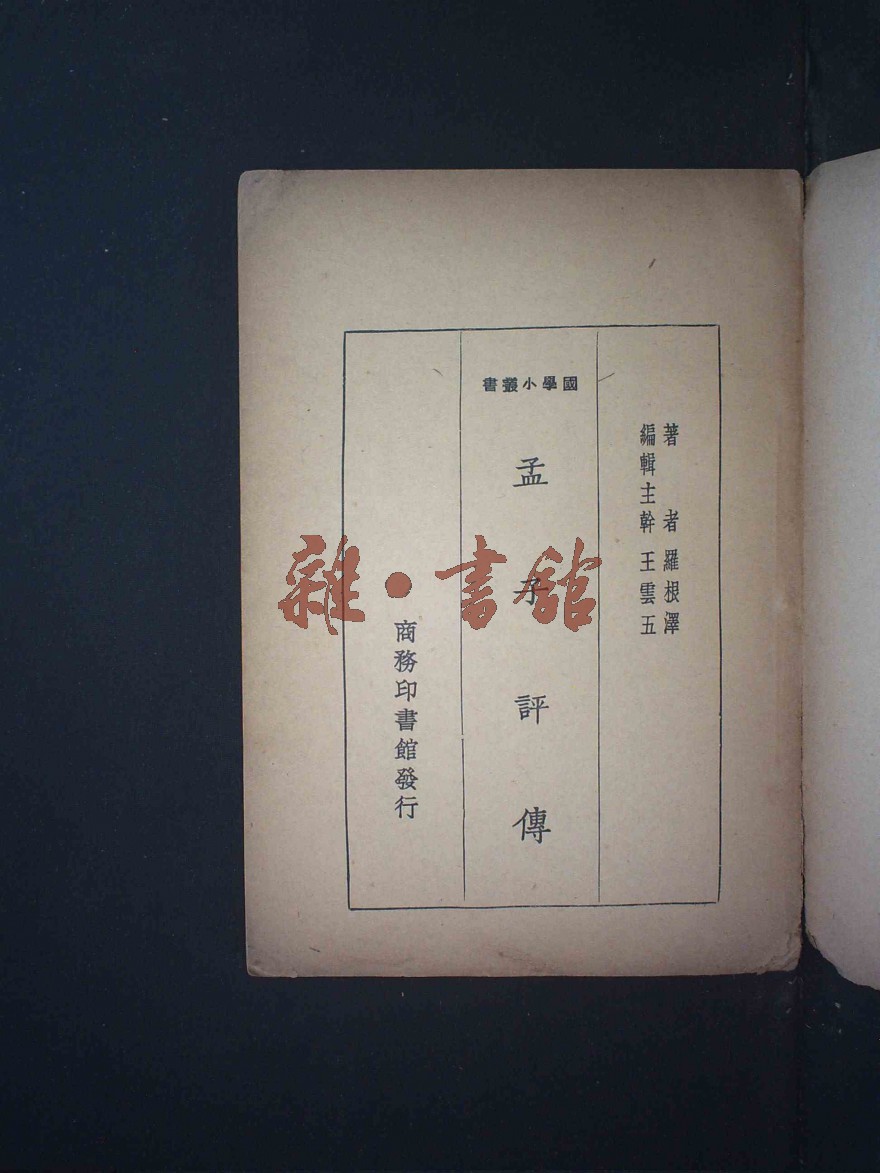 著者 羅根澤
編輯主幹 王雲五
國學小叢書
孟子評傳
商務印書館發行
雜·書館